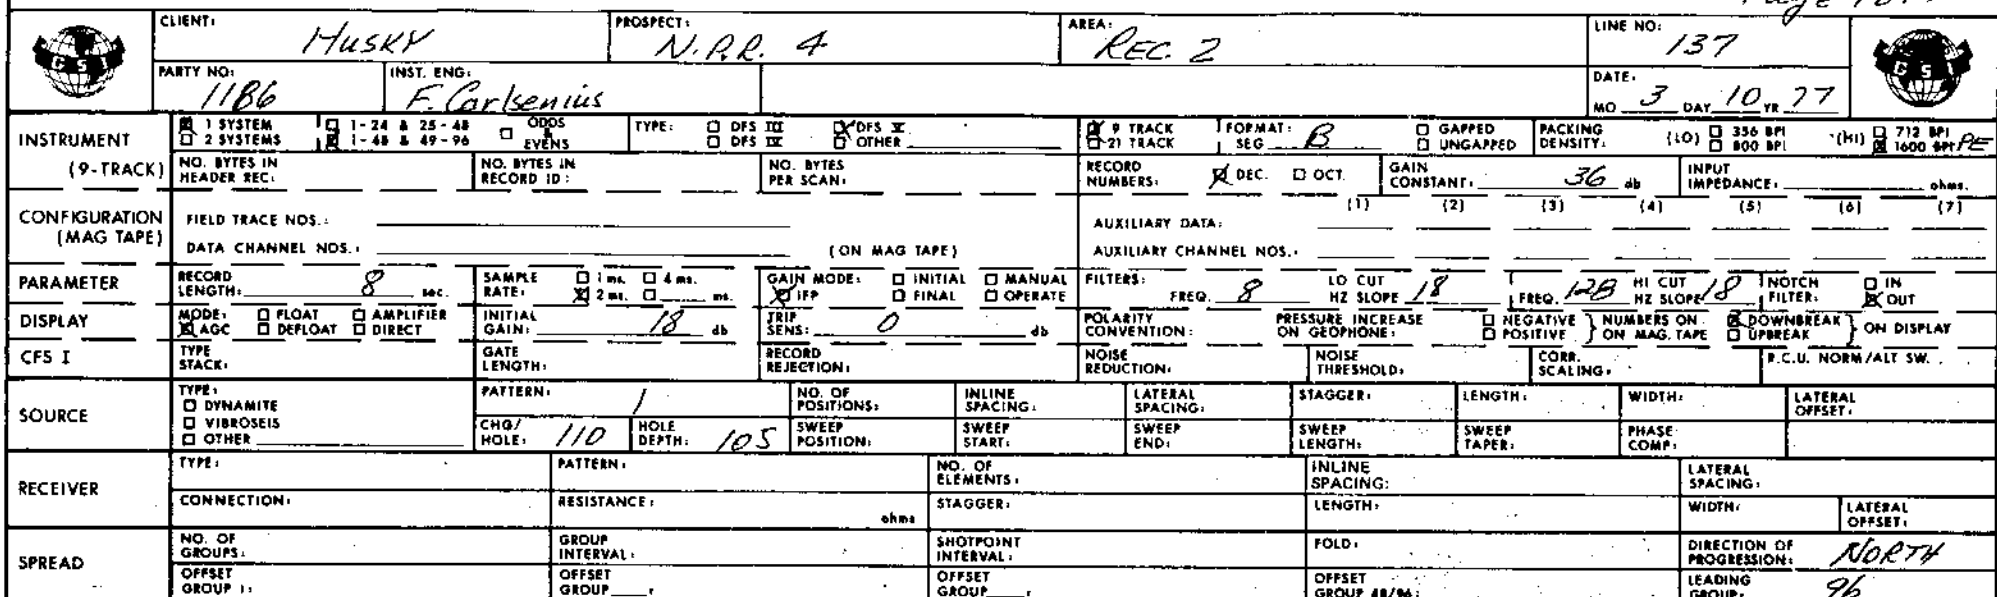 Page 1 of
CLIENT: HUSKY PROSPECT: N.P.R. 4 AREA: REC. 2 LINE NO: 137
GSI GSI
PARTY NO: 1186 INST. ENG: F. Carlsenius DATE: MO 3 DAY 10 YR 77
INSTRUMENT (9-TRACK)
1 SYSTEM 1-24 & 25-48 ODDS & EVENS TYPE: DFS III DFS V 9 TRACK FORMAT: SEG B GAPPED PACKING DENSITY: (LO) 356 BPI (HI) 712 BPI
2 SYSTEMS 1-48 & 49-96 DFS IV OTHER 21 TRACK UNGAPPED 800 BPI 1600 BPI PE
NO. BYTES IN HEADER REC: NO. BYTES IN RECORD ID: NO. BYTES PER SCAN: RECORD NUMBERS: DEC. OCT. GAIN CONSTANT: 36 db INPUT IMPEDANCE: ohms.
CONFIGURATION (MAG TAPE)
(1) (2) (3) (4) (5) (6) (7)
FIELD TRACE NOS.: AUXILIARY DATA:
DATA CHANNEL NOS.: (ON MAG TAPE) AUXILIARY CHANNEL NOS.:
PARAMETER RECORD LENGTH: 8 sec. SAMPLE RATE: 1 ms. 4 ms. 2 ms. ms. GAIN MODE: INITIAL MANUAL IFP FINAL OPERATE FILTERS: FREQ. 8 LO CUT HZ SLOPE 18 FREQ. 128 HI CUT HZ SLOPE 18 NOTCH FILTER: IN OUT
DISPLAY MODE: FLOAT AMPLIFIER AGC DEFLOAT DIRECT INITIAL GAIN: 18 db TRIP SENS: 0 db POLARITY CONVENTION: PRESSURE INCREASE ON GEOPHONE: NEGATIVE POSITIVE } NUMBERS ON MAG. TAPE DOWNBREAK UPBREAK } ON DISPLAY
CFS I TYPE STACK: GATE LENGTH: RECORD REJECTION: NOISE REDUCTION: NOISE THRESHOLD: CORR. SCALING: R.C.U. NORM/ALT SW.
SOURCE TYPE: DYNAMITE VIBROSEIS OTHER
PATTERN: 1 NO. OF POSITIONS: INLINE SPACING: LATERAL SPACING: STAGGER: LENGTH: WIDTH: LATERAL OFFSET:
CHG/HOLE: 110 HOLE DEPTH: 105 SWEEP POSITION: SWEEP START: SWEEP END: SWEEP LENGTH: SWEEP TAPER: PHASE COMP:
RECEIVER
TYPE: PATTERN: NO. OF ELEMENTS: INLINE SPACING: LATERAL SPACING:
CONNECTION: RESISTANCE: ohms STAGGER: LENGTH: WIDTH: LATERAL OFFSET:
SPREAD
NO. OF GROUPS: GROUP INTERVAL: SHOTPOINT INTERVAL: FOLD: DIRECTION OF PROGRESSION: NORTH
OFFSET GROUP 1: OFFSET GROUP : OFFSET GROUP : OFFSET GROUP 48/96: LEADING GROUP: 96